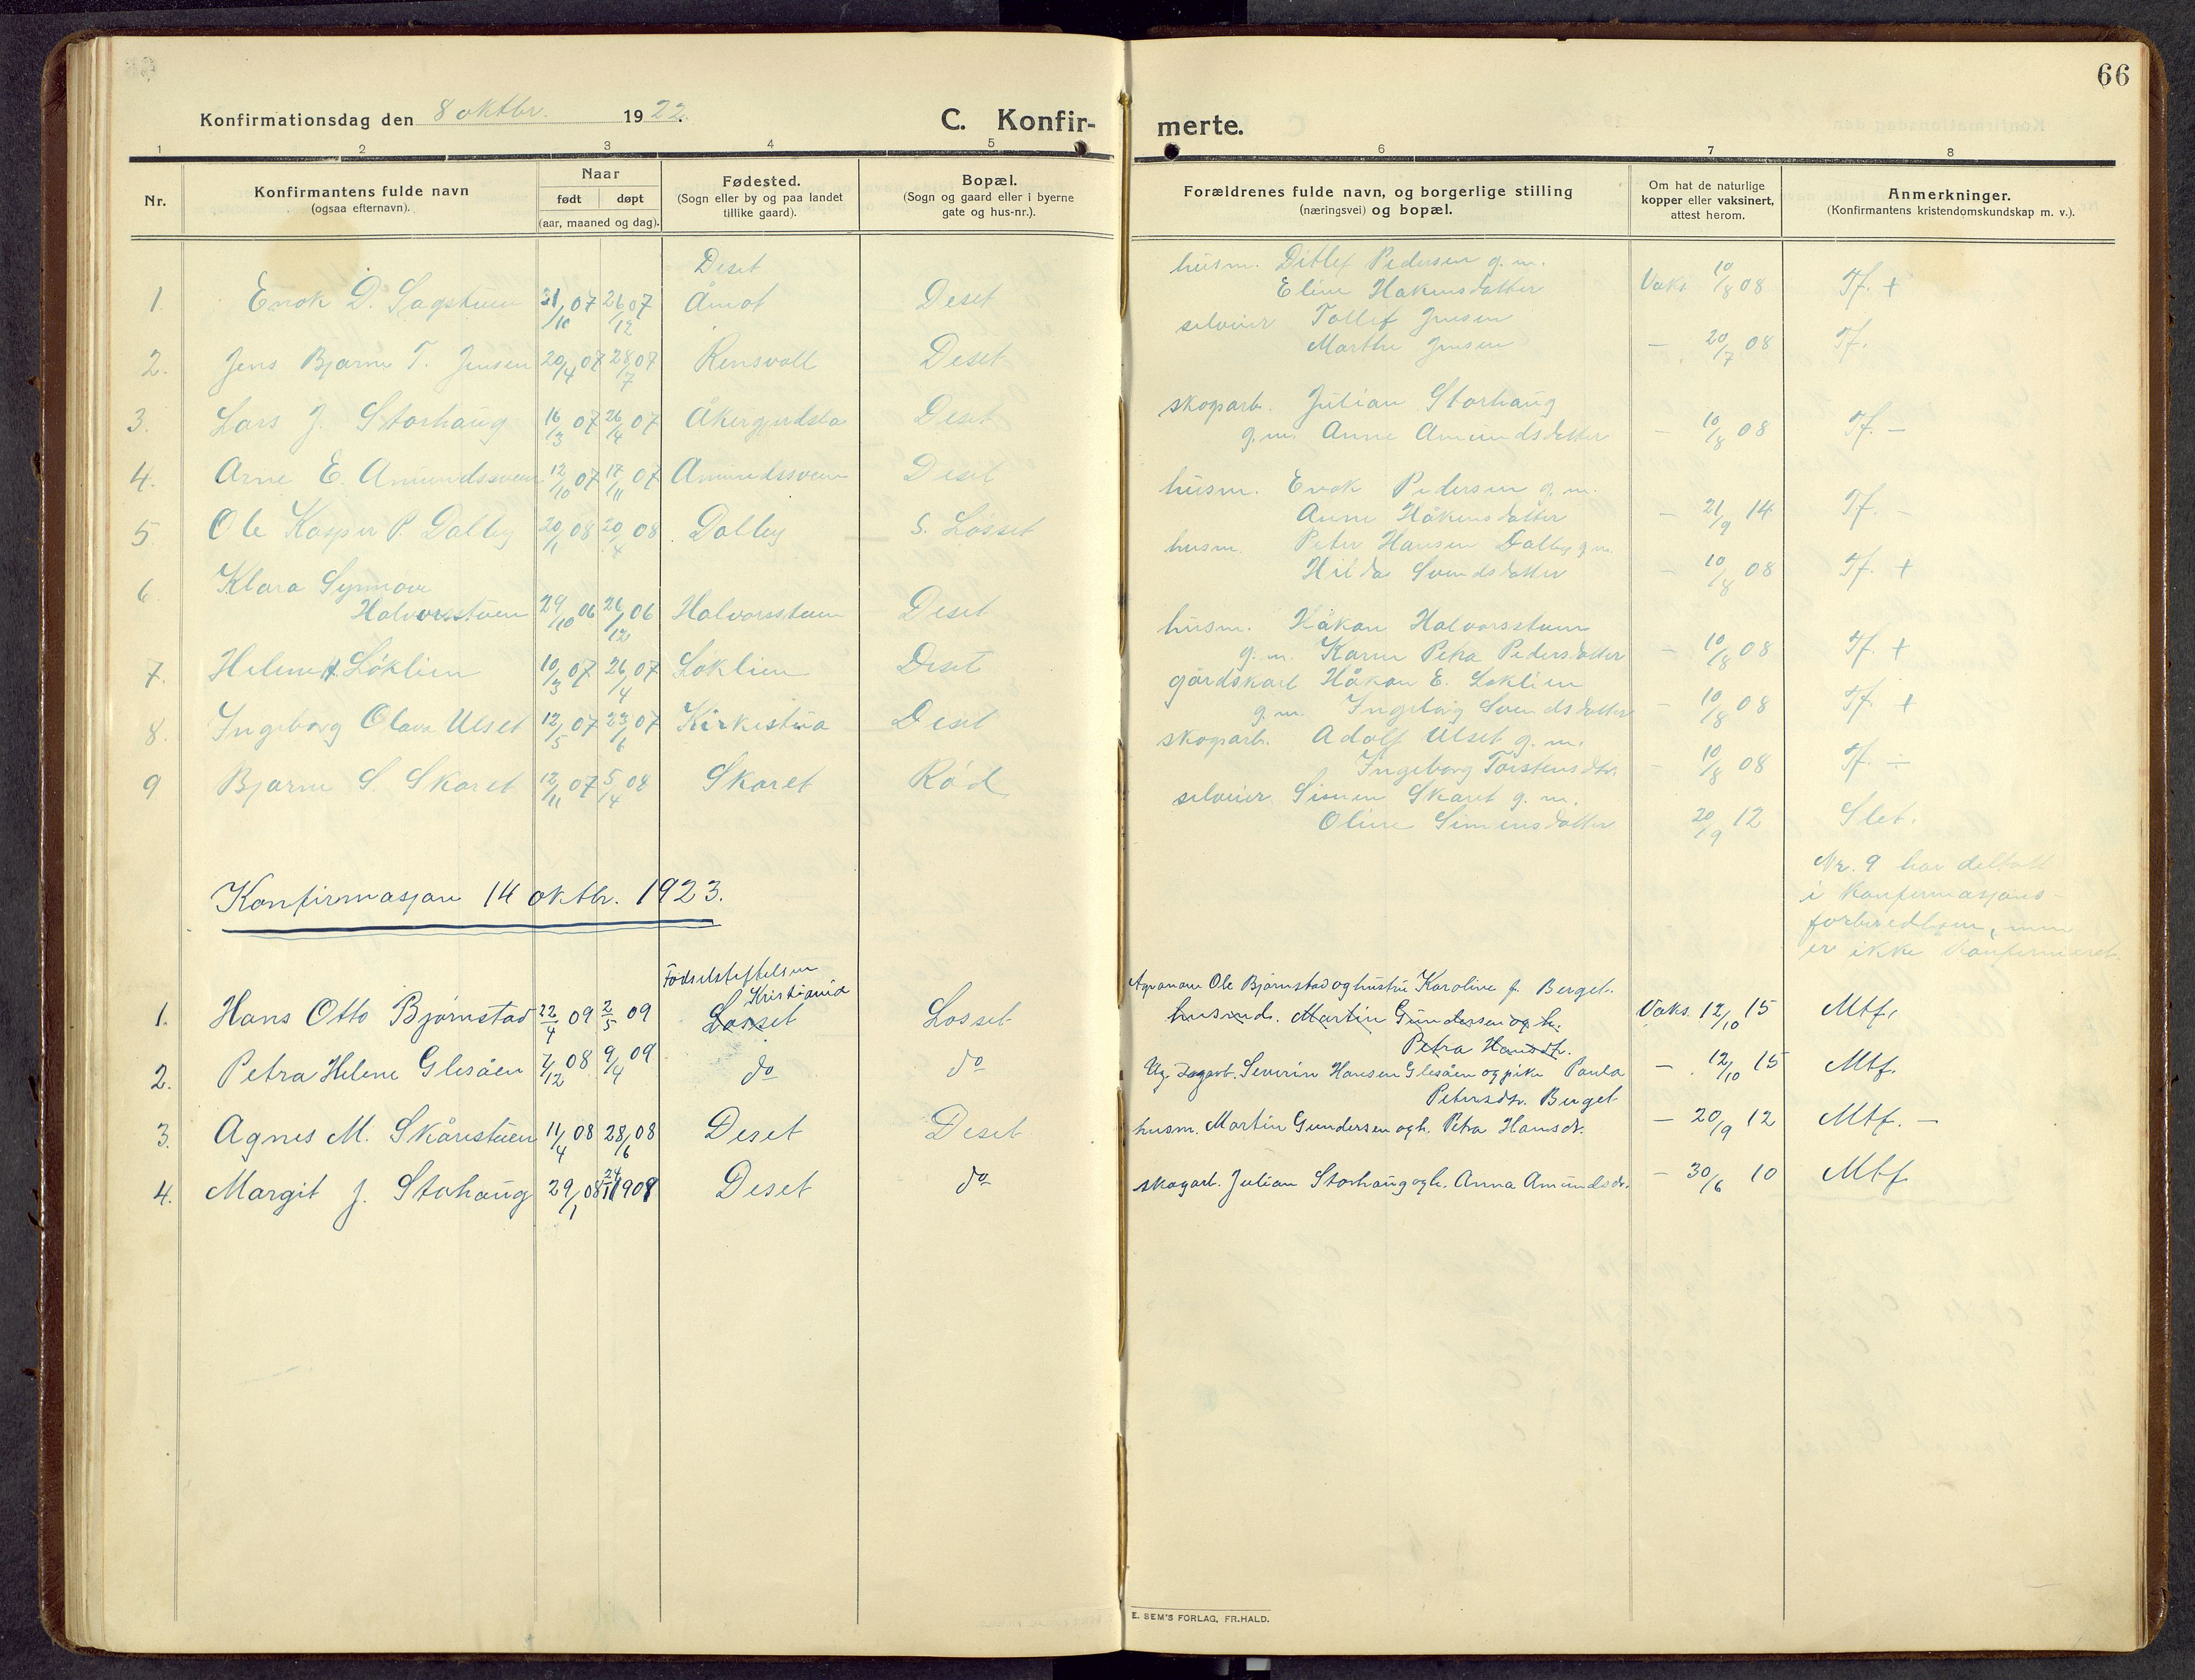 66
Konfirmationsdag den 8 oktbr. 1922.
C. Konfir-
merte.
1 2 3 4 5
6 7 8
Nr.
Konfirmantens fulde navn
(ogsaa efternavn).
Naar
født døpt
(aar, maaned og dag).
Fødested.
(Sogn eller by og paa landet
tillike gaard).
Bopæl.
(Sogn og gaard eller i byerne
gate og hus-nr.).
Forældrenes fulde navn, og borgerlige stilling
(næringsvei) og bopæl.
Om hat de naturlige
kopper eller vaksinert,
attest herom.
Anmerkninger.
(Konfirmantens kristendomskundskap m. v.).
Deset
1. Enok D. Sagstuen 31/10 07 26/12 07 Åmot Deset
husm. Ditlef Pedersen g. m.
Eline Hakensdatter Vaks 10/8 08 Tf. +
2. Jens Bjarne T. Jensen 20/4 07 28/7 07 Rensvoll Deset
selveier Tollef Jensen
Marthe Jensen — 20/7 08 Tf.
3. Lars J. Storhaug 16/3 07 26/4 07 Deset
skogarb. Julian Storhaug
g. m. Anne Amundsdatter — 10/8 08 Tf. —
4. Arne E. Amundssveen 12/10 07 17/11 07 Amundssveen Deset
husm. Enok Pedersen g. m.
Anne Håkensdatter — 21/9 14 Tf. —
5 Ole Kasper P. Dalby 20/1 08 20/4 08 Dalby S. Losset
husm. Peter Hansen Dalby g. m.
Hilda Svendsdatter — 10/8 08 Tf. +
6. Klara Synnøve
Halvorsstuen 29/10 06 26/12 06 Halvorsstuen Deset
husm. Håkon Halvorsstuen
g. m. Karen Petra Pedersdatter — 10/8 08 Tf. +
7. Helene H. Løklien 10/3 07 26/4 07 Løklien Deset
gårdskarl Håkon E. Løklien
g. m. Ingeborg Svendsdatter — 10/8 08 Tf. +
8. Ingeborg Olava Ulset 12/5 07 23/6 07 Kirkestua Deset
skogarb. Adolf Ulset g. m.
Ingeborg Torstensdtr. — 10/8 08 Tf. ÷
9 Bjarne S. Skaret 12/11 07 5/4 08 Skaret Rød
selveier Simen Skaret g. m.
Oline Simensdatter 20/9 12 Slet.
Nr. 9 har deltatt
i konfirmasjons-
forberedelsen, men
er ikke konfirmeret.
Konfirmasjon 14 oktbr. 1923.
Fødselstiftelsen
Kristiania
1. Hans Otto Bjørnstad 22/4 09 2/5 09 Losset Losset
Agronom Ole Bjørnstad og hustru Karoline f. Berget.
husmd. Martin Gundersen og h.
Petra Hansdt. Vaks. 12/10 15 Mtf.
2. Petra Helene Glesåen 7/12 08 9/4 09 do do
Ug. Dagarb. Severin Hansen Glesåen og pike Paula
Petersdtr. Berget — 12/10 15 Mtf.
3. Agnes M. Skårstuen 11/4 08 28/6 08 Deset Deset
husm. Martin Gundersen og h. Petra Hansdt. — 20/9 12 Mtf. —
4. Margit J. Storhaug 29/1 08 Deset do
skogarb. Julian Storhaug og h. Anna Amundsdr. — 30/6 10 Mtf
E. SEM'S FORLAG, FR.HALD.